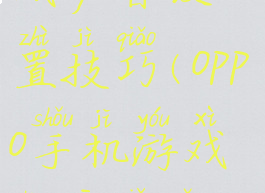 zhì jì qiǎo
置技巧(OPP
shǒu jī yóu xì
O手机游戏